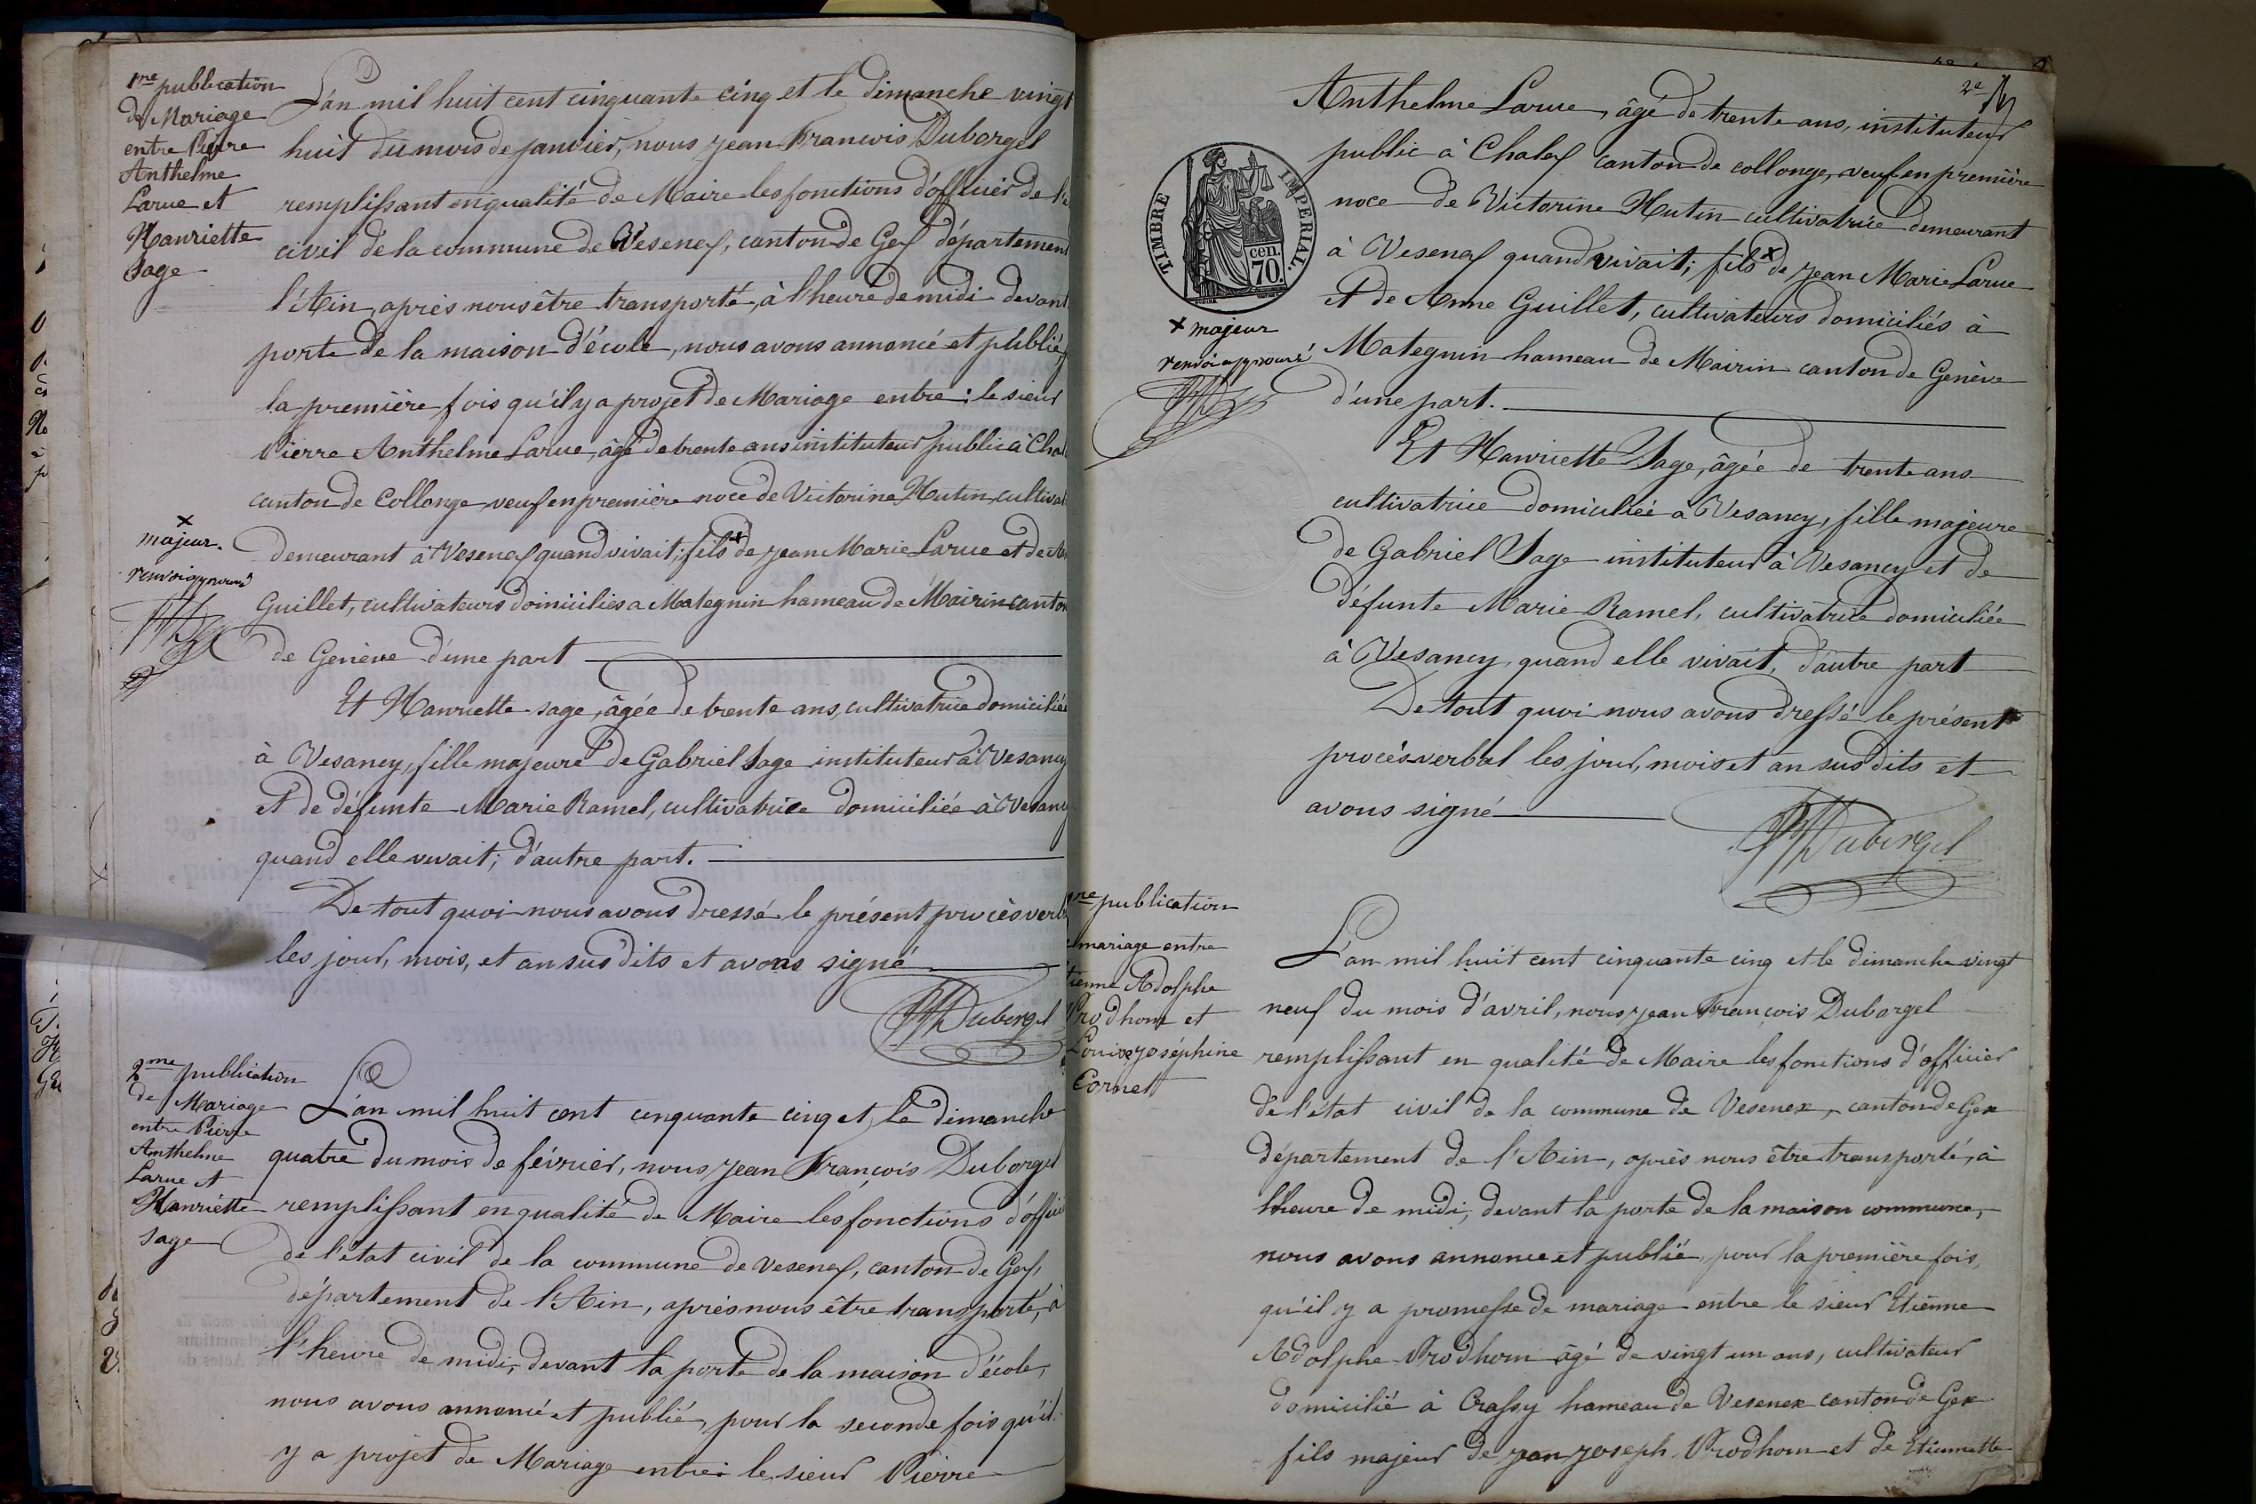 1re publication
de Mariage
entre Pierre
Anthelme
Larue et
Hanriette
Sage
L'an mil huit cent cinquante cinq et le dimanche vingt
huit du mois de janvier, nous jean François Duborgel
remplissant en qualité de Maire les fonctions d'officier de l'é
civil de la commune de Vesenex, canton de Gex département
l'Ain, après nous être transporté, à l'heure de midi devant
porte de la maison d'école, nous avons annoncé et publié,
la première fois qu'il y a projet de Mariage entre : le sieur
Pierre Anthelme Larue, âgé de trente ans instituteur public à Chal
canton de Collonge, veuf en première noce de Victorine Hutin, cultivat
demeurant à Vesenex quand vivait; fils x de jean Marie Larue et de A
Guillet, cultivateurs domiciliés a Mategnin hameau de Mairin canton
de Genève d'une part
x
majeur.
renvoi approuvé
Et Hanriette sage, âgée de trente ans, cultivatrice domiciliée
à Vesancy, fille majeure de Gabriel Sage instituteur à Vesancy
et de défunte Marie Ramel, cultivatrice domiciliée à Vesancy
quand elle vivait; d'autre part.
De tout quoi nous avons dressé le présent procès verb
les jour, mois, et an sus dits et avons signé
Duborgel
2me publication
de Mariage
entre Pierre
Anthelme
Larue et
Hanriette
sage
L'an mil huit cent cinquante cinq et le dimanche
quatre du mois de février, nous jean François Duborgel
remplissant en qualité de Maire les fonctions d'offici
de l'état civil de la commune de Vesenex, canton de Gex,
département de l'Ain, après nous être transporté, à
l'heure de midi, devant la porte de la maison d'école,
nous avons annoncé et publié, pour la seconde fois qu'il
y a projet de Mariage entre: le sieur Pierre
2e
Anthelme Larue, âgé de trente ans, instituteur
public à Chalex canton de collonge, veuf en première
noce de Victorine Hutin cultivatrice demeurant
à Vesenex quand vivait; fils x de jean Marie Larue
et de Anne Guillet, cultivateurs domiciliés à
Mategnin hameau de Mairin canton de Genève
d'une part.
TIMBRE IMPERIAL.
cen.
70
x majeur
renvoi approuvé
Et Hanriette Sage, âgée de trente ans
cultivatrice domiciliée à Vesancy, fille majeure
de Gabriel Sage instituteur à Vesancy et de
défunte Marie Ramel, cultivatrice domiciliée
à Vesancy, quand elle vivait, d'autre part
De tout quoi nous avons dressé le présent
procès verbal les jour, mois et an sus dits et
avons signé
Duborgel
re publication
mariage entre
tienne Adolphe
Prodhom et
Louise joséphine
Cornet
L'an mil huit cent cinquante cinq et le dimanche vingt
neuf du mois d'avril, nous jean François Duborgel
remplissant en qualité de Maire les fonctions d'officier
de l'état civil de la commune de Vesenex, canton de Gex
département de l'Ain, après nous être transporté, à
l'heure de midi, devant la porte de la maison commune,
nous avons annoncé et publié, pour la première fois,
qu'il y a promesse de mariage entre le sieur Etienne
Adolphe Prodhom âgé de vingt un ans, cultivateur
domicilié à Crassy hameau de Vesenex canton de Gex
fils majeur de jean joseph Prodhom et de Etiennette